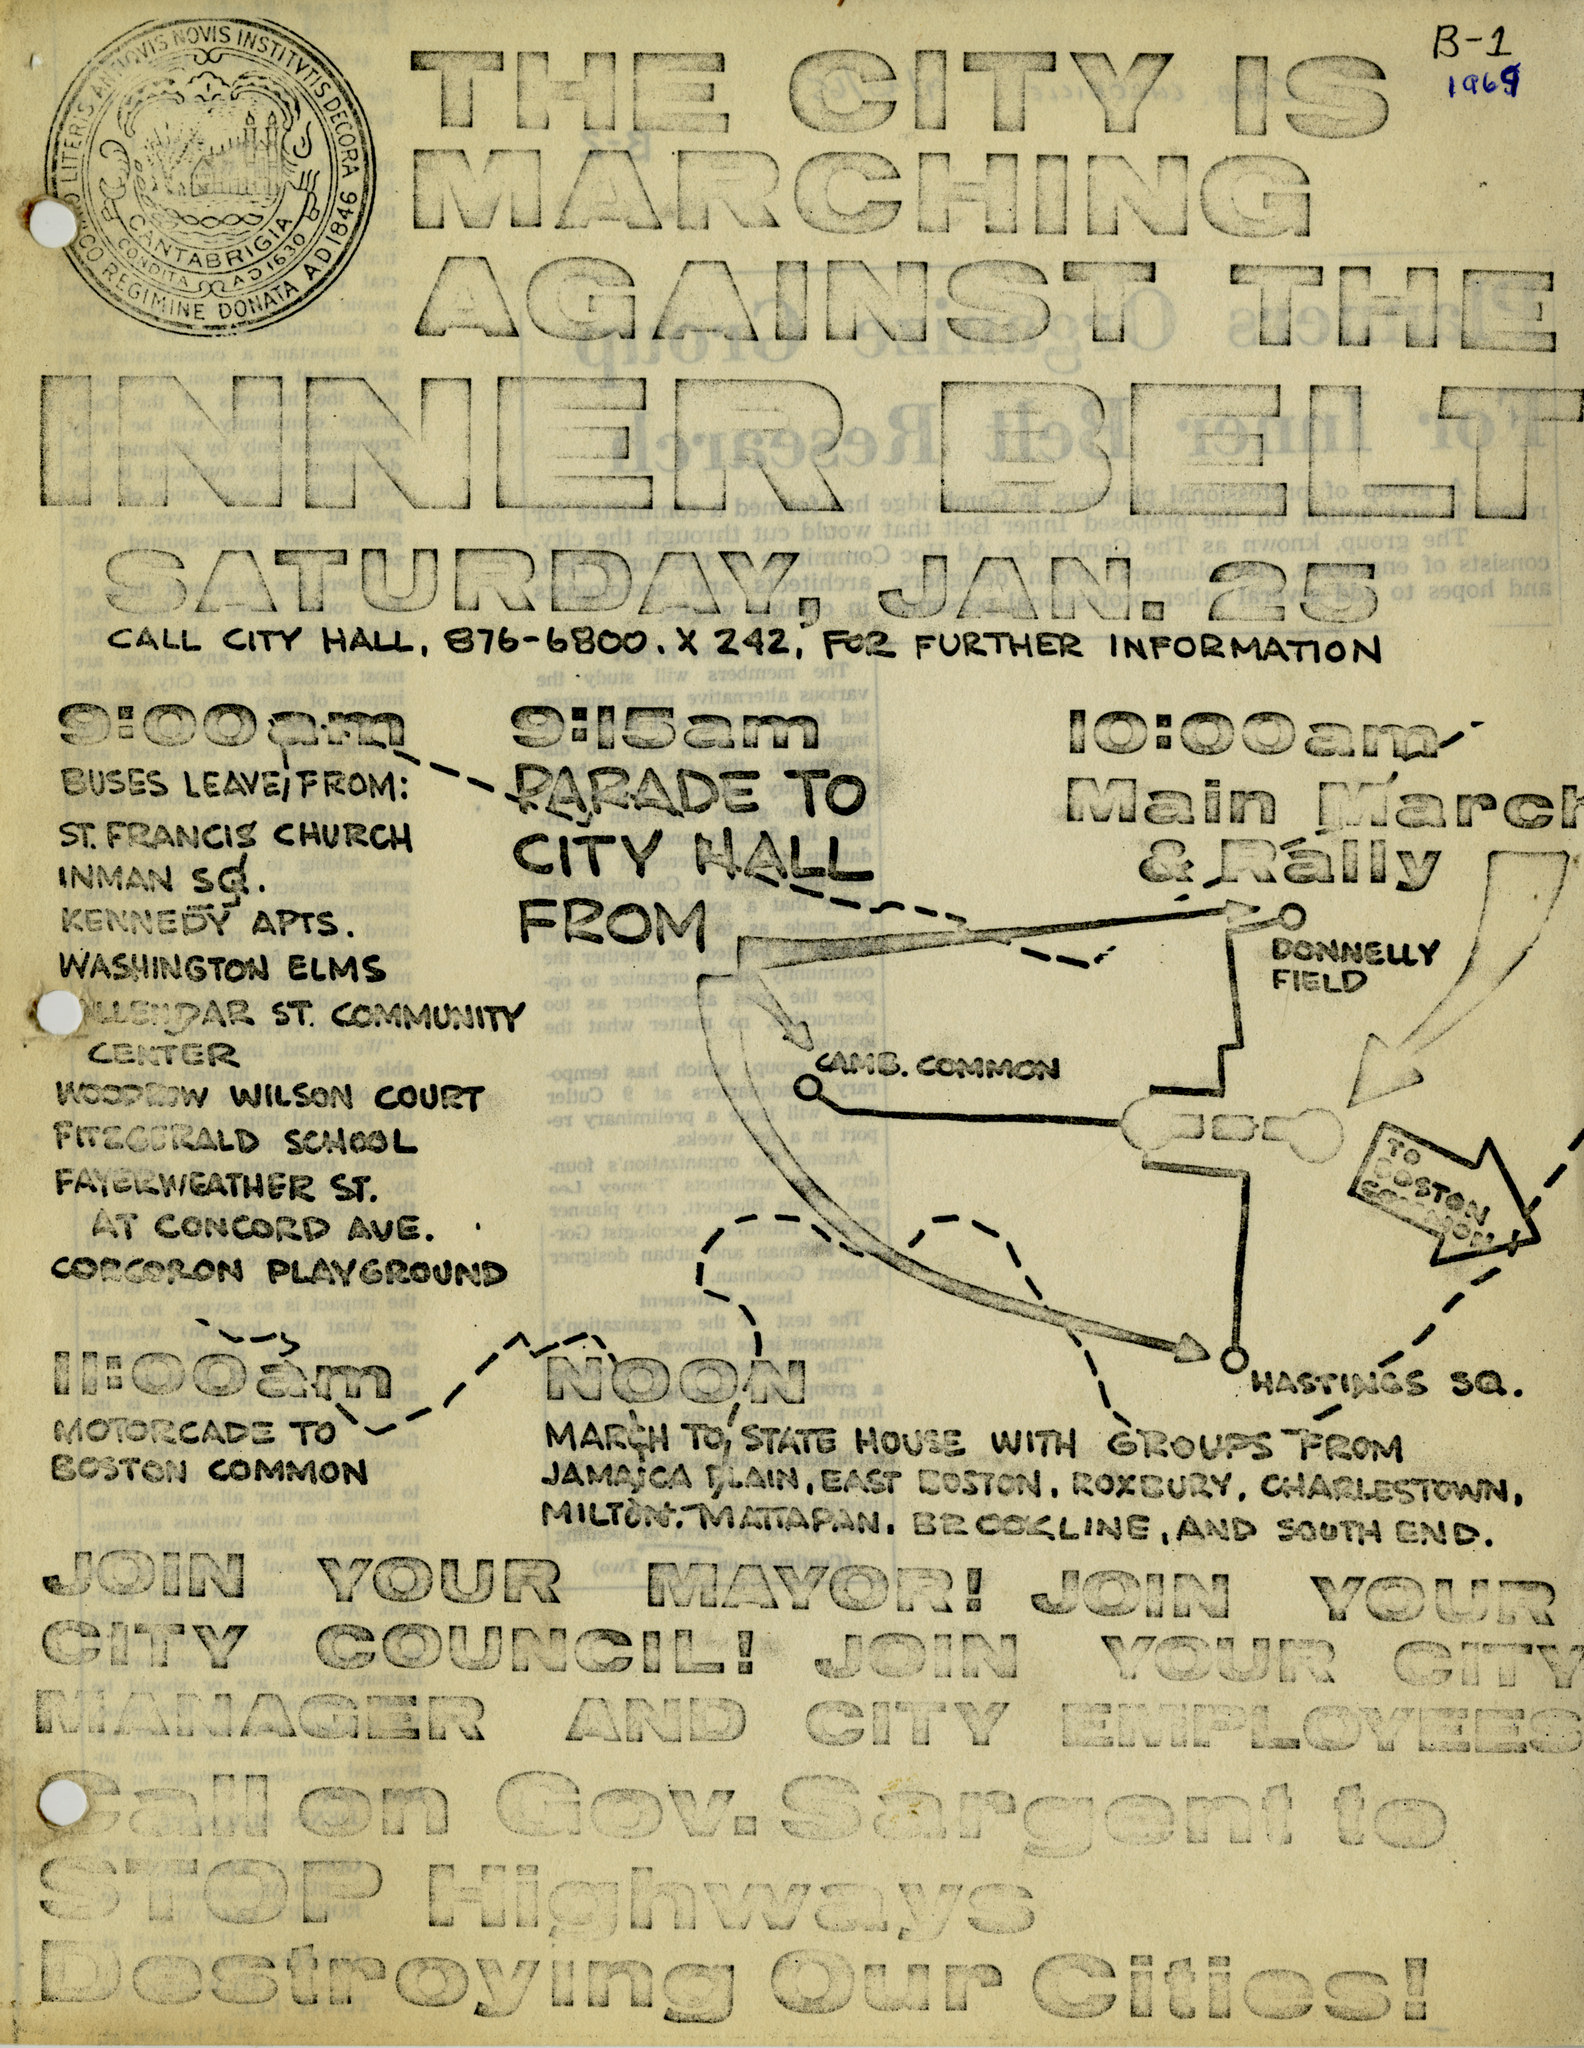 LITERIS ANTIQVIS NOVIS INSTITVTIS DECORA
REGIMINE DONATA AD 1846
CANTABRIGIA
CONDITA AD 1630
B-1
1969
THE CITY IS
MARCHING
AGAINST THE
INNER BELT
SATURDAY, JAN. 25
CALL CITY HALL, 876-6800, X 242, FOR FURTHER INFORMATION
9:00am
BUSES LEAVE FROM:
ST. FRANCIS CHURCH
INMAN SQ.
KENNEDY APTS.
WASHINGTON ELMS
ALLENDAR ST. COMMUNITY
CENTER
WOODROW WILSON COURT
FITZGERALD SCHOOL
FAYERWEATHER ST.
AT CONCORD AVE.
CORCORON PLAYGROUND
9:15am
PARADE TO
CITY HALL
FROM
10:00am
Main March
& Rally
DONNELLY
FIELD
CAMB. COMMON
TO
BOSTON
COMMON
HASTINGS SQ.
11:00am
MOTORCADE TO
BOSTON COMMON
NOON
MARCH TO STATE HOUSE WITH GROUPS FROM
JAMAICA PLAIN, EAST BOSTON, ROXBURY, CHARLESTOWN,
MILTON, MATTAPAN, BROOKLINE, AND SOUTH END.
JOIN YOUR MAYOR! JOIN YOUR
CITY COUNCIL! JOIN YOUR CITY
MANAGER AND CITY EMPLOYEES
Call on Gov. Sargent to
STOP Highways
Destroying Our Cities!